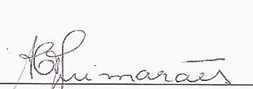 ACGuimarães